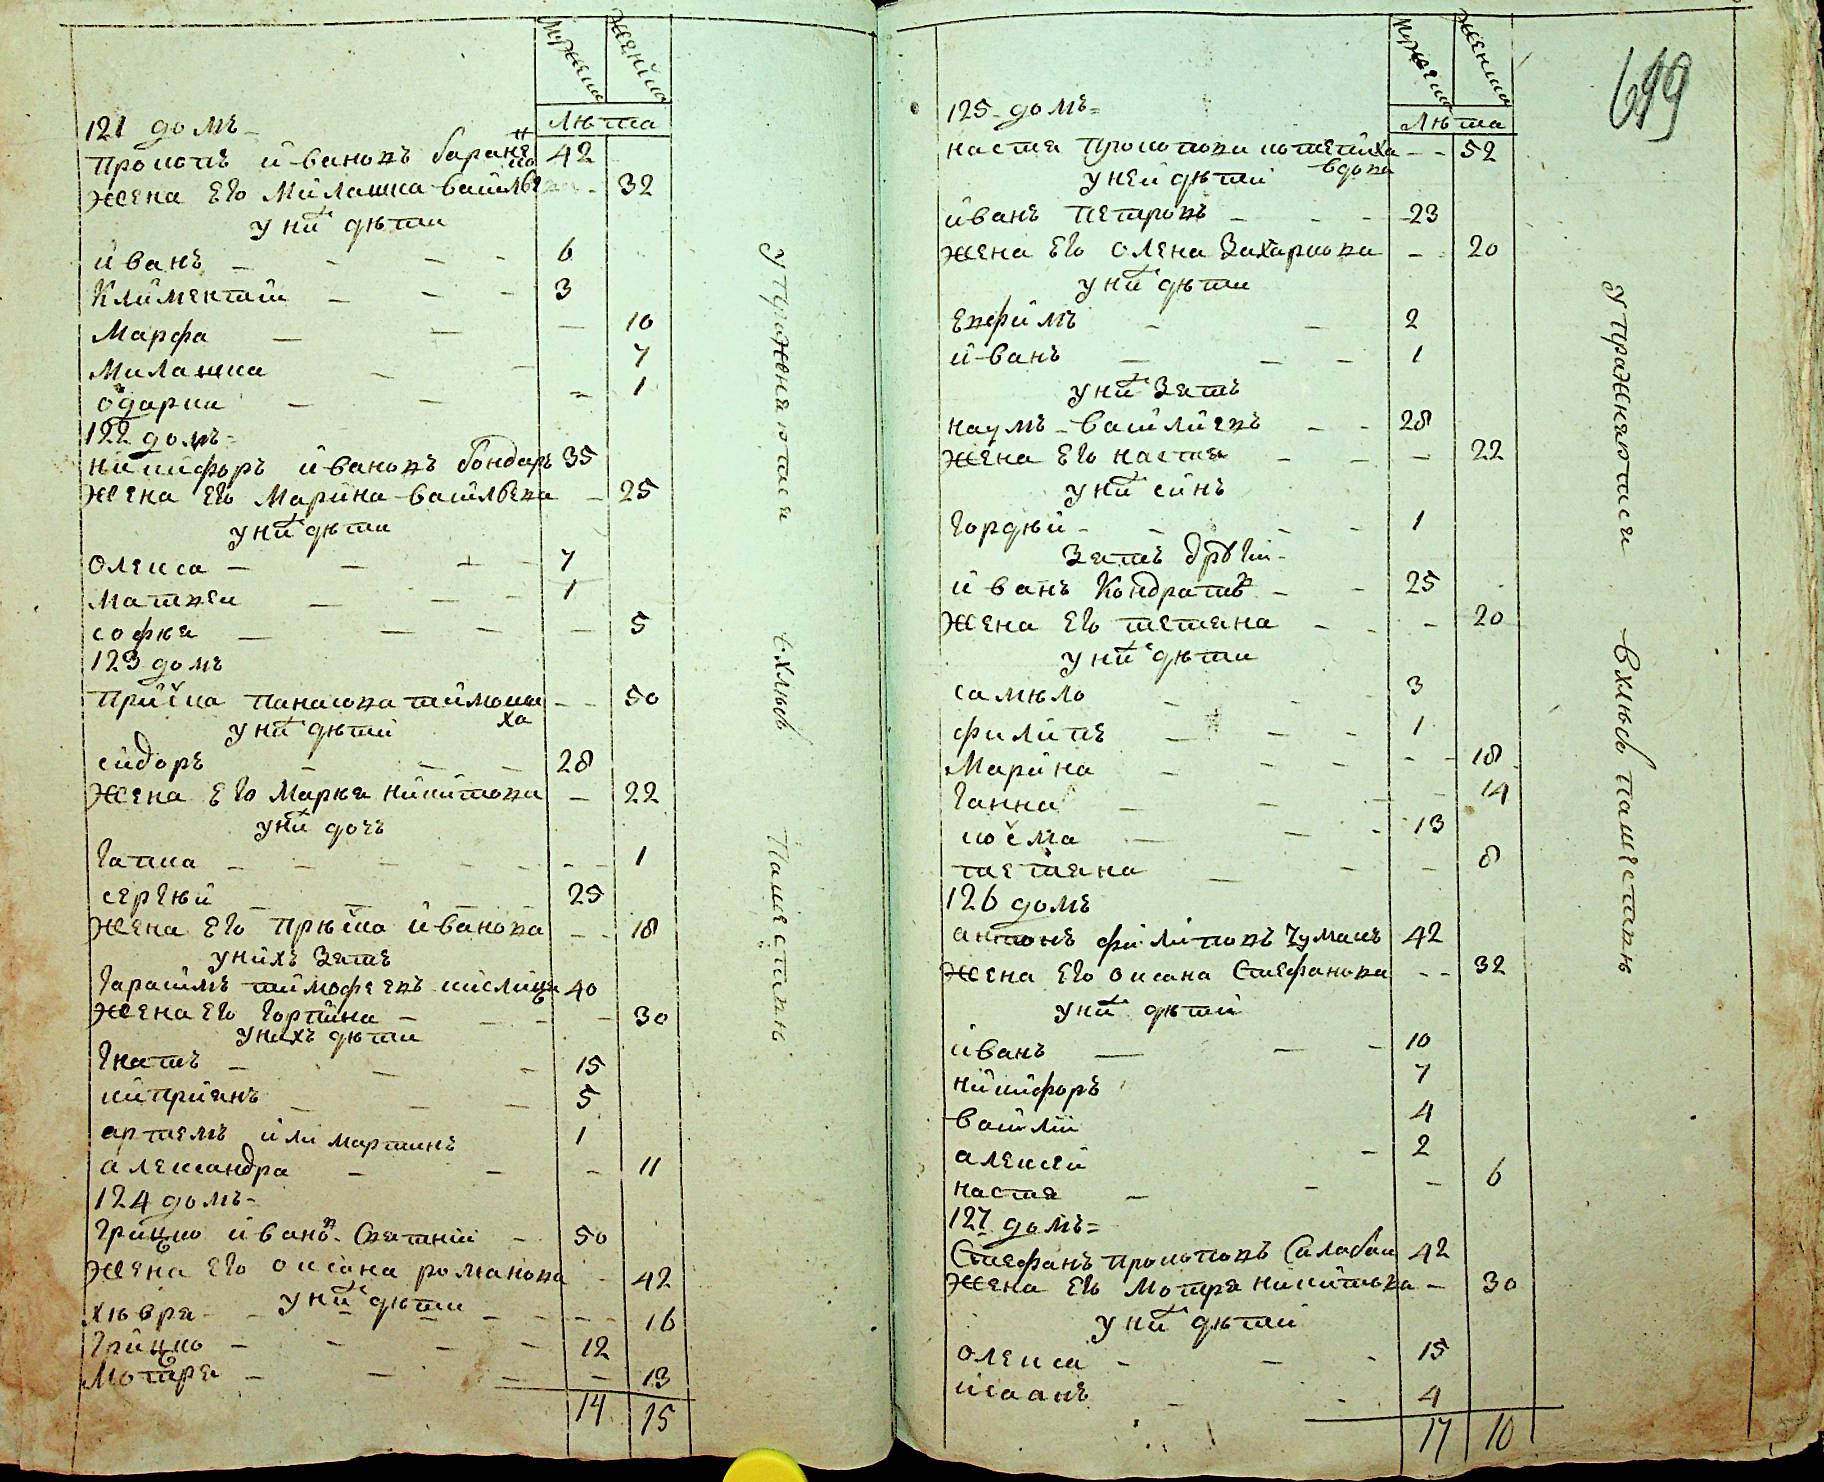 Мужеска Женска
Лѣта
121 домъ
Прокопъ Ивановъ Баране нко 42
Жена его Милашка Васильева 32
у них дѣти
Иванъ 6
Климентий 3
Марфа 10
Милашка 7
Одарка 1
122 домъ
Никифоръ Ивановъ Бондаръ 35
Жена его Марина Васильева 25
у них дѣти
Олекса 7
Матвеи 1
Софѣя 5
123 домъ
Приска Панасова Тимоши ха 50
у них дѣти
Сидоръ 28
Жена его Марѣя Никитова 22
у них дочъ
Гапка 1
Сергѣй 25
Жена его Прѣска Иванова 18
у нихъ зять
Гарасимъ Тимофеевъ Кислица 40
Жена его Горпина 30
у нихъ дѣти
Гнатъ 15
Киприянъ 5
Артемъ или Мартинъ 1
Александра 11
124 домъ
Грицко Иванов Святний 50
Жена его Оксана Романова 42
у них дѣти
Хѣвря 16
Грицко 12
Мотря 13
14 15
Упражняются
в хлѣбо
пашестве
Мужеска Женска
649
Лѣта
125 домъ
Настя Прокопова Котенха вдова 52
у ней дѣти
Иванъ Петровъ 23
Жена его Олена Захаркова 20
у них дѣти
Евфимъ 2
Иванъ 1
у них зять
Наумъ Василиевъ 28
Жена его Настя 22
у них синъ
Гордѣй 1
Зять другий
Иванъ Кондратов 25
Жена его Тетяна 20
у них дѣти
Самѣло 3
Филипъ 1
Марина 18
Ганна 14
Косма 13
Тетияна 8
126 домъ
Антонъ Филиповъ Чумакъ 42
Жена его Оксана Стефанова 32
у них дѣти
Иванъ 10
Никифоръ 7
Василий 4
Алексей 2
Настя 6
127 домъ
Стефанъ Прокоповъ Салабай 42
Жена его Мотря Никитова 30
у них дѣти
Олекса 15
Исаакъ 4
17 10
Упражняются
в хлѣбо пашестве